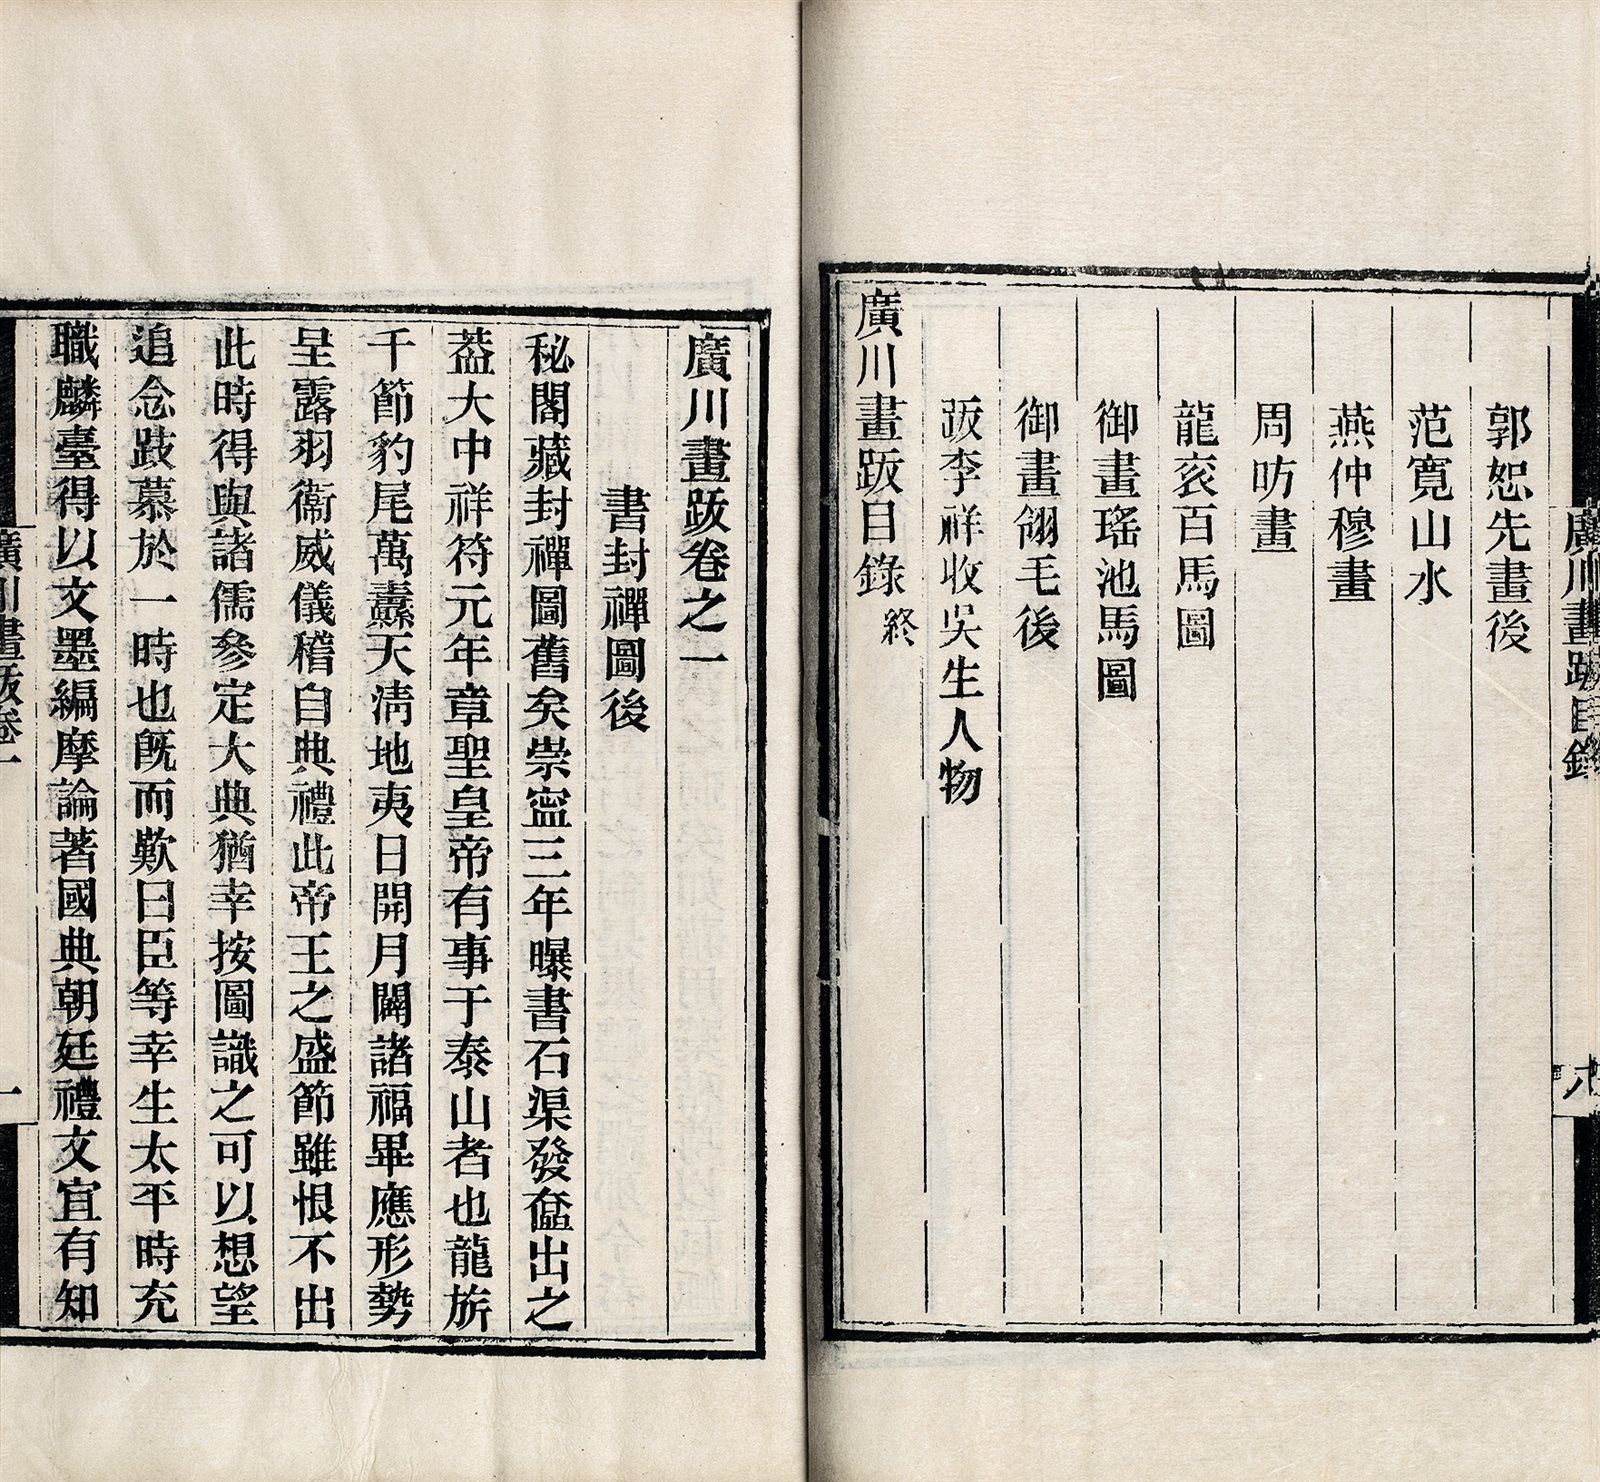 郭恕先畫後
范寬山水
燕仲穆畫
周昉畫
龍袞百馬圖
御畫瑤池馬圖
御畫翎毛後
跋李祥收吳生人物
廣川畫跋目錄終
廣川畫跋目錄
八
廣川畫跋卷之一
書封禪圖後
秘閣藏封禪圖舊矣崇寍三年曝書石渠發奩出之
葢大中祥符元年章聖皇帝有事于泰山者也龍旂
千節豹尾萬纛天淸地夷日開月闢諸福畢應形勢
呈露羽衞威儀稽自典禮此帝王之盛節雖恨不出
此時得與諸儒參定大典猶幸按圖識之可以想望
追念跂慕於一時也旣而歎曰臣等幸生太平時充
職麟臺得以文墨編摩論著國典朝廷禮文宜有知
廣川畫跋卷一
一